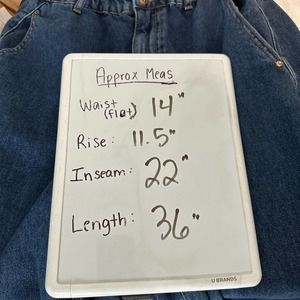 Approx Meas
Waist 14"
(flat)
Rise: 11.5"
Inseam: 22"
Length: 36"
U BRANDS